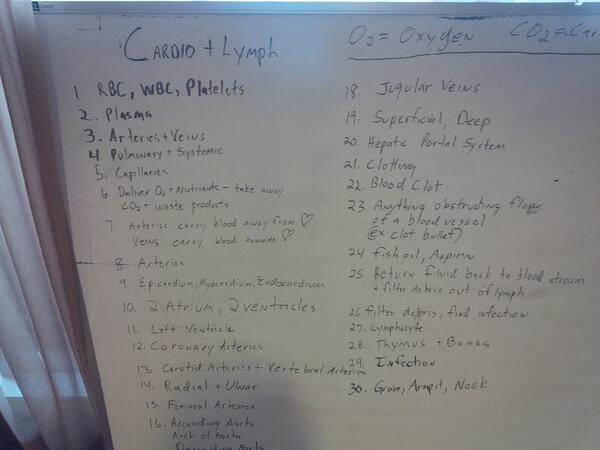 Cardio + Lymph
O2 = Oxygen CO2 = Car
1 RBC, WBC, Platelets
2. Plasma
3. Arteries + Veins
4. Pulmonary + Systemic
5. Capillaries
6. Deliver O2 + Nutrients - take away
CO2 + waste products
7. Arteries carry blood away from ♡
Veins carry blood towards ♡
8. Arteries
9. Epicardium, Myocardium, Endocardium
10. 2 Atrium, 2 ventricles
11. Left Ventricle
12. Coronary Arteries
13. Carotid Arteries + Vertebral Arteries
14. Radial + Ulnar
15. Femoral Arteries
16. Ascending Aorta
Arch of Aorta
Descending Aorta
18. Jugular Veins
19. Superficial, Deep
20. Hepatic Portal System
21. Clotting
22. Blood Clot
23. Anything obstructing flow
of a blood vessel
(ex clot, bullet)
24. fish oil, Aspirin
25. Return fluid back to blood stream
+ filter debris out of lymph
26. filter debris, find infection
27. Lymphocyte
28. Thymus + Bones
29. Infection
30. Groin, Armpit, Neck